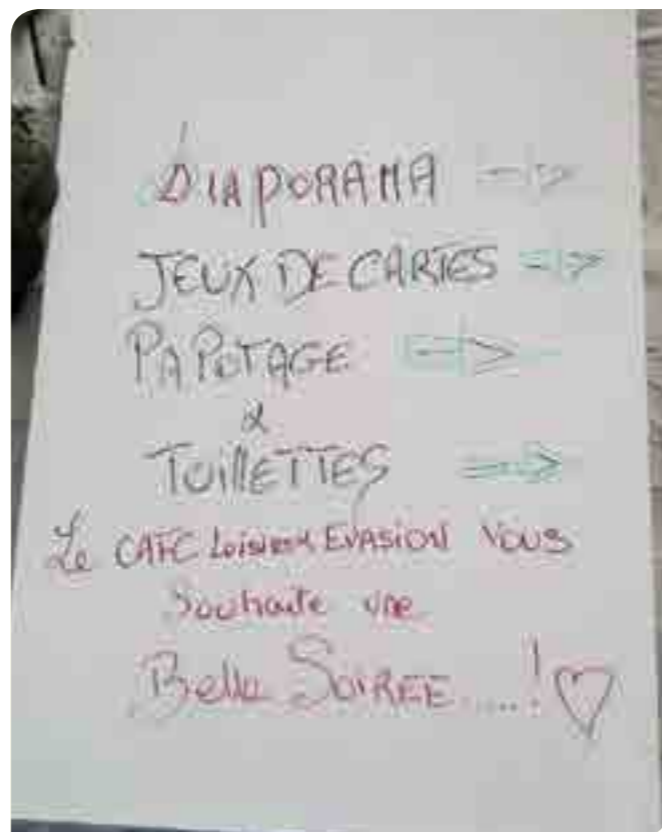 DIAPORAMA
JEUX DE CARTES
PAPOTAGE
&
TOILLETTES
Le CAFE Loisirs EVASION VOUS
Souhaite une
Belle SOIREE.....!